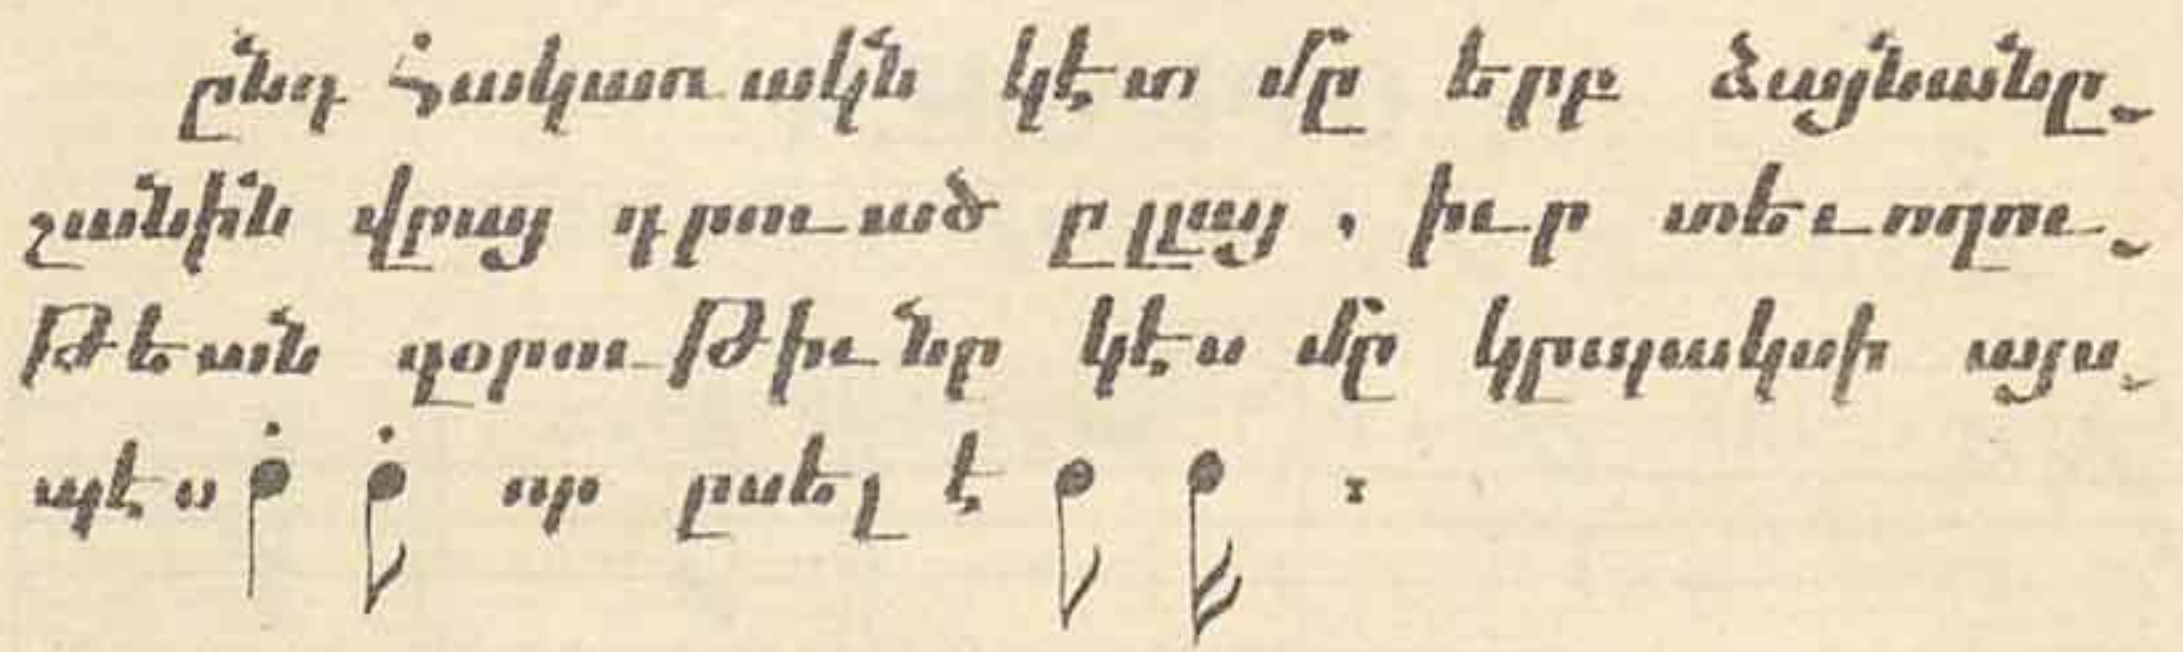 ընդ հակառակն կէտ մը երբ ձայնանը֊
շանին վրայ դրուած ըլլայ, իւր տեւողու֊
թեան զօրութիւնը կէս մը կըպակսի այս֊
պէս որ ըսել է :